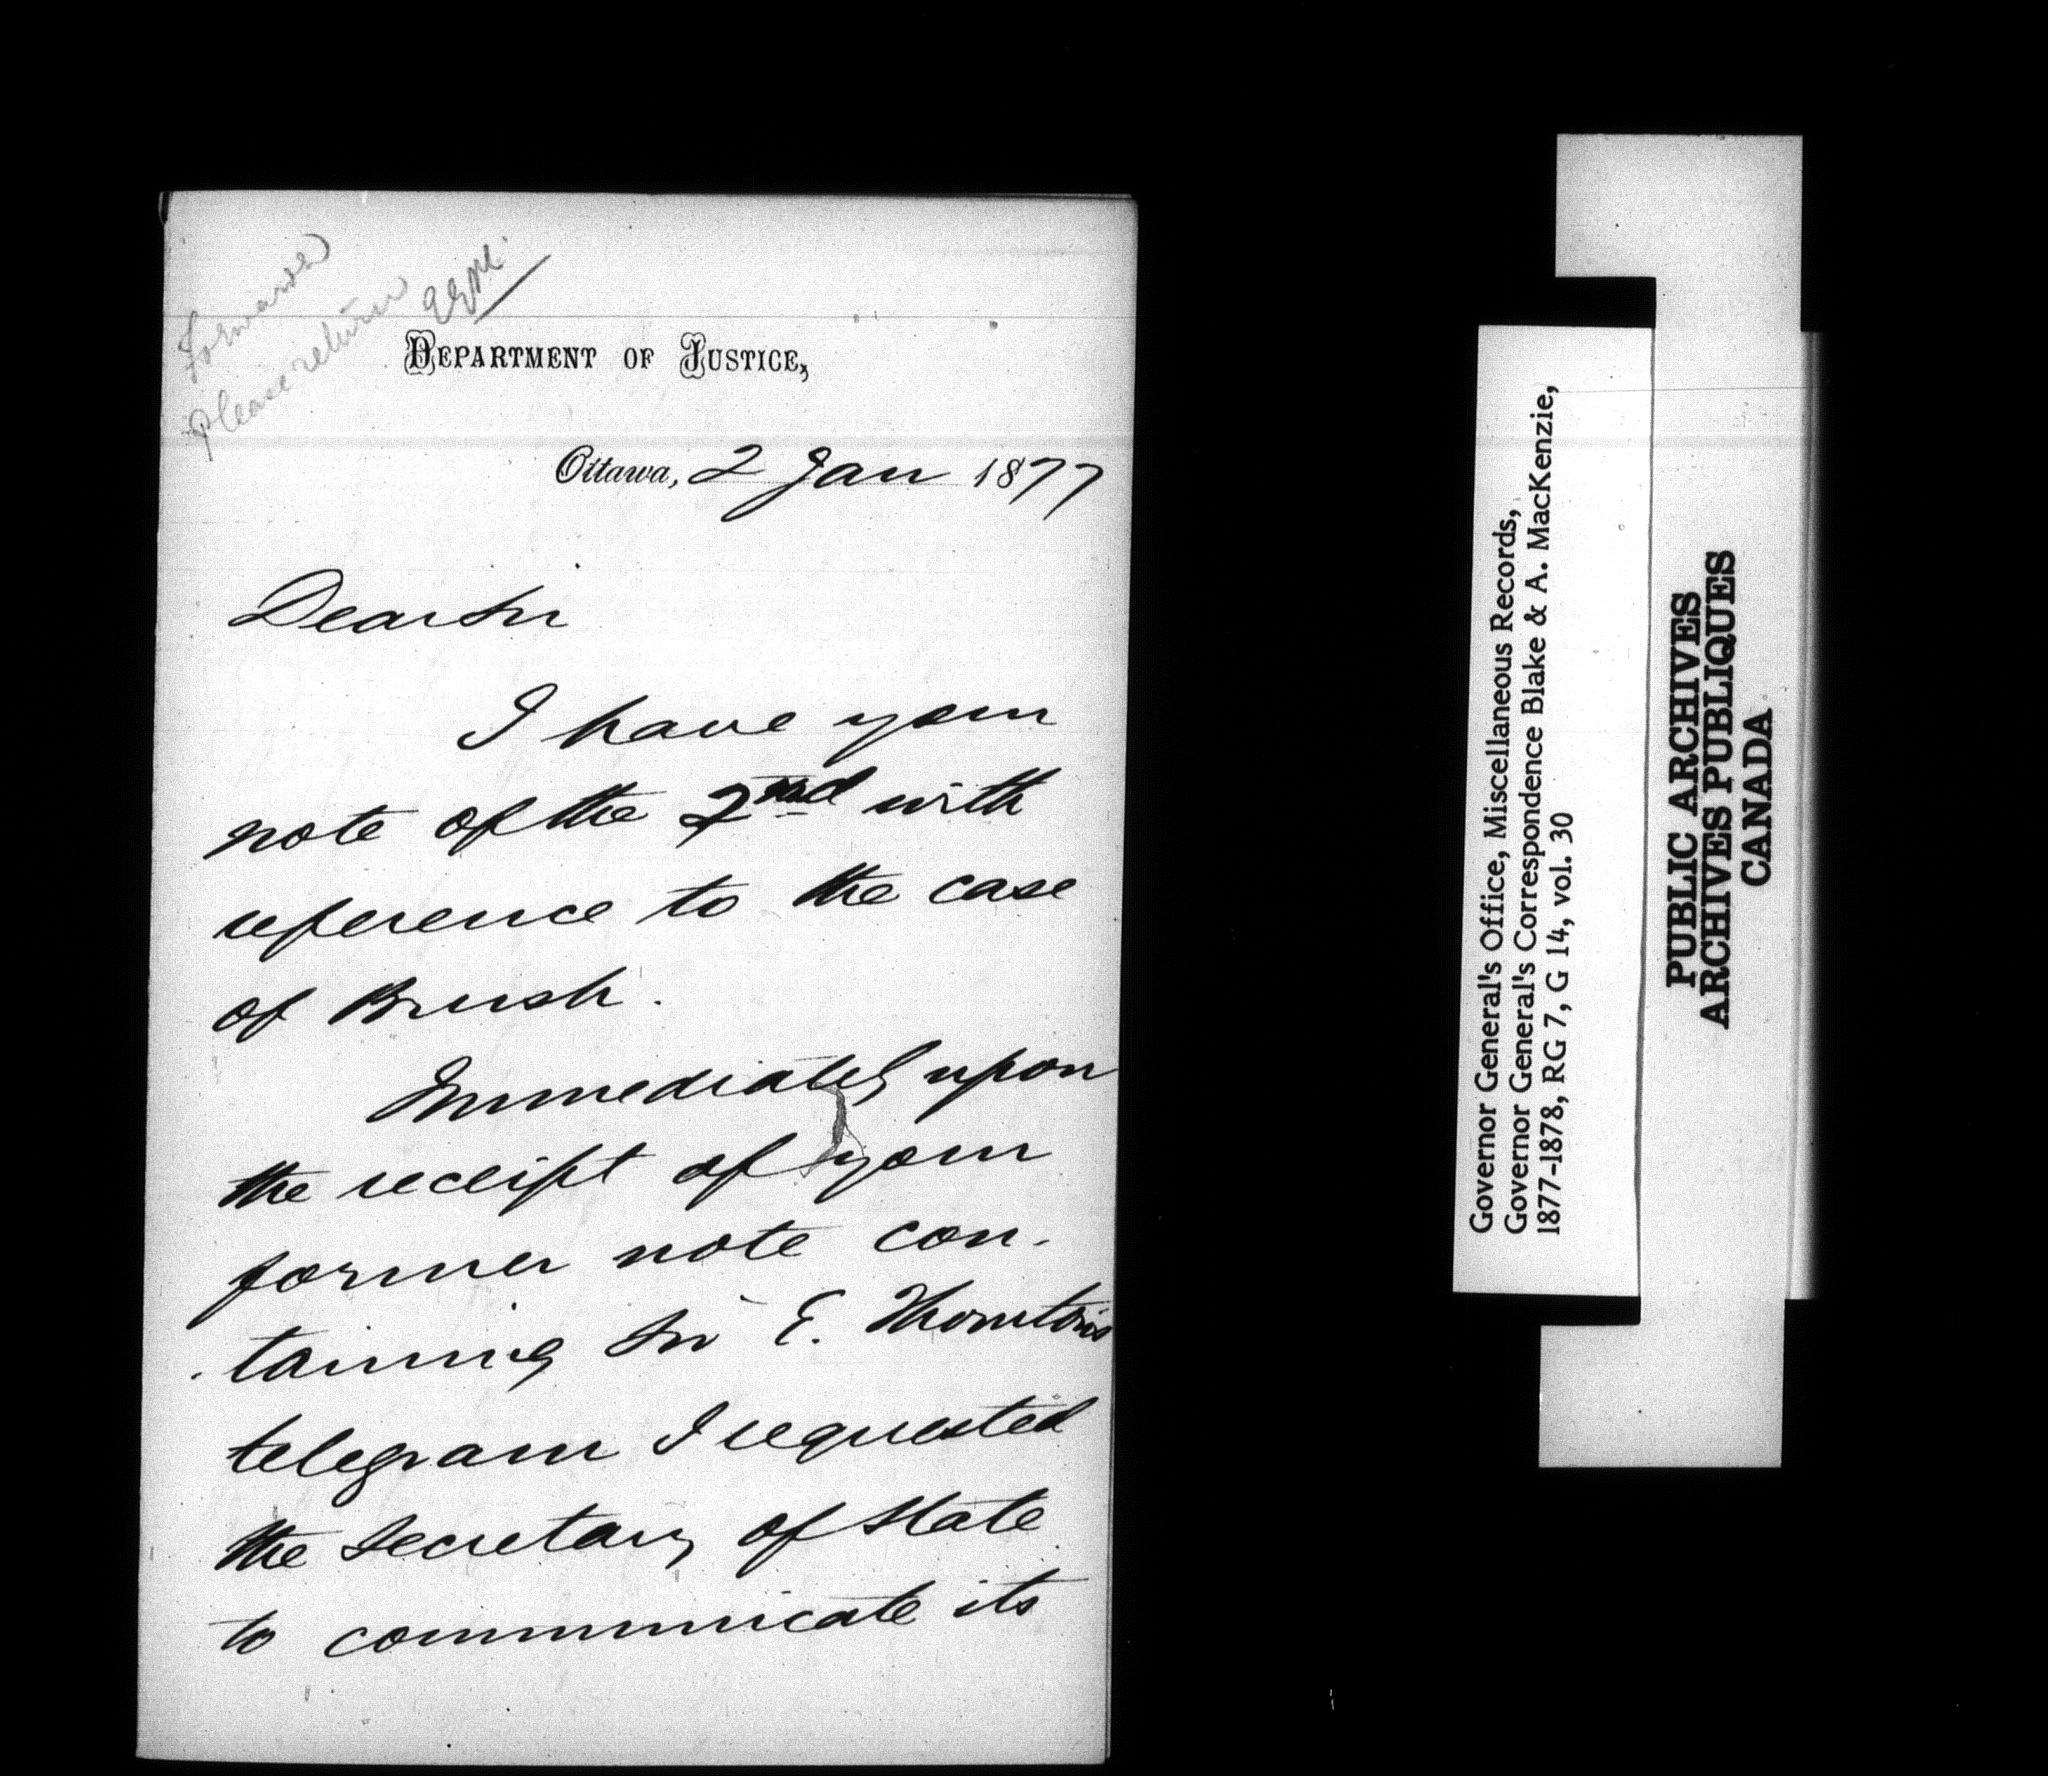 Forwarded
Please return
DEPARTMENT OF JUSTICE,
Ottawa, 2 Jan 1877
Dear Sir
I have your
note of the 2nd with
reference to the case
of Brush.
Immediately upon
the receipt of your
former note con-
-taining Sir E. Thornton's
telegram I requested
the Secretary of State
to communicate its
Governor General's Office, Miscellaneous Records,
Governor General's Correspondence Blake & A. MacKenzie,
1877-1878, RG 7, G 14, vol. 30
PUBLIC ARCHIVES
ARCHIVES PUBLIQUES
CANADA